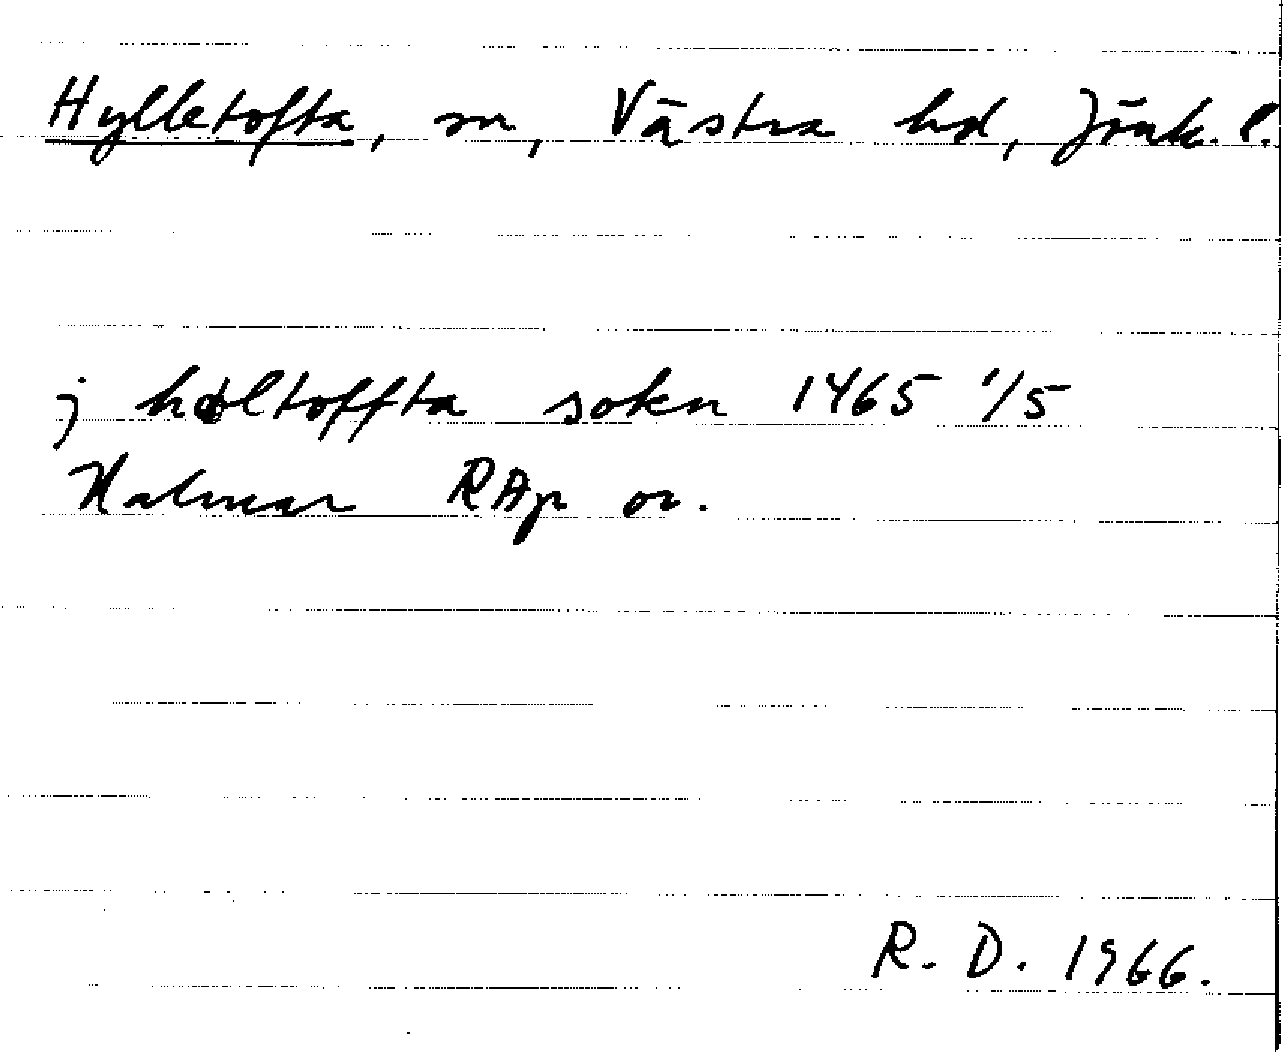 Hylletofta, sn, Västra hd, Jönk. l.
j høltoffta sokn 1465 1/5
Kalmar RAp or.
R. D. 1966.